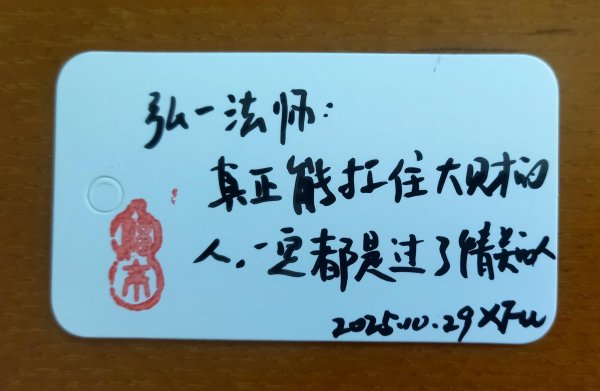 弘一法师：
真正能扛住大财的
人，一定都是过了情关的人
2025.10.29 XFu